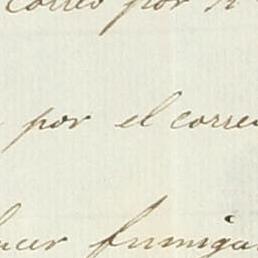 correo por
por el corre
hacer fumiga